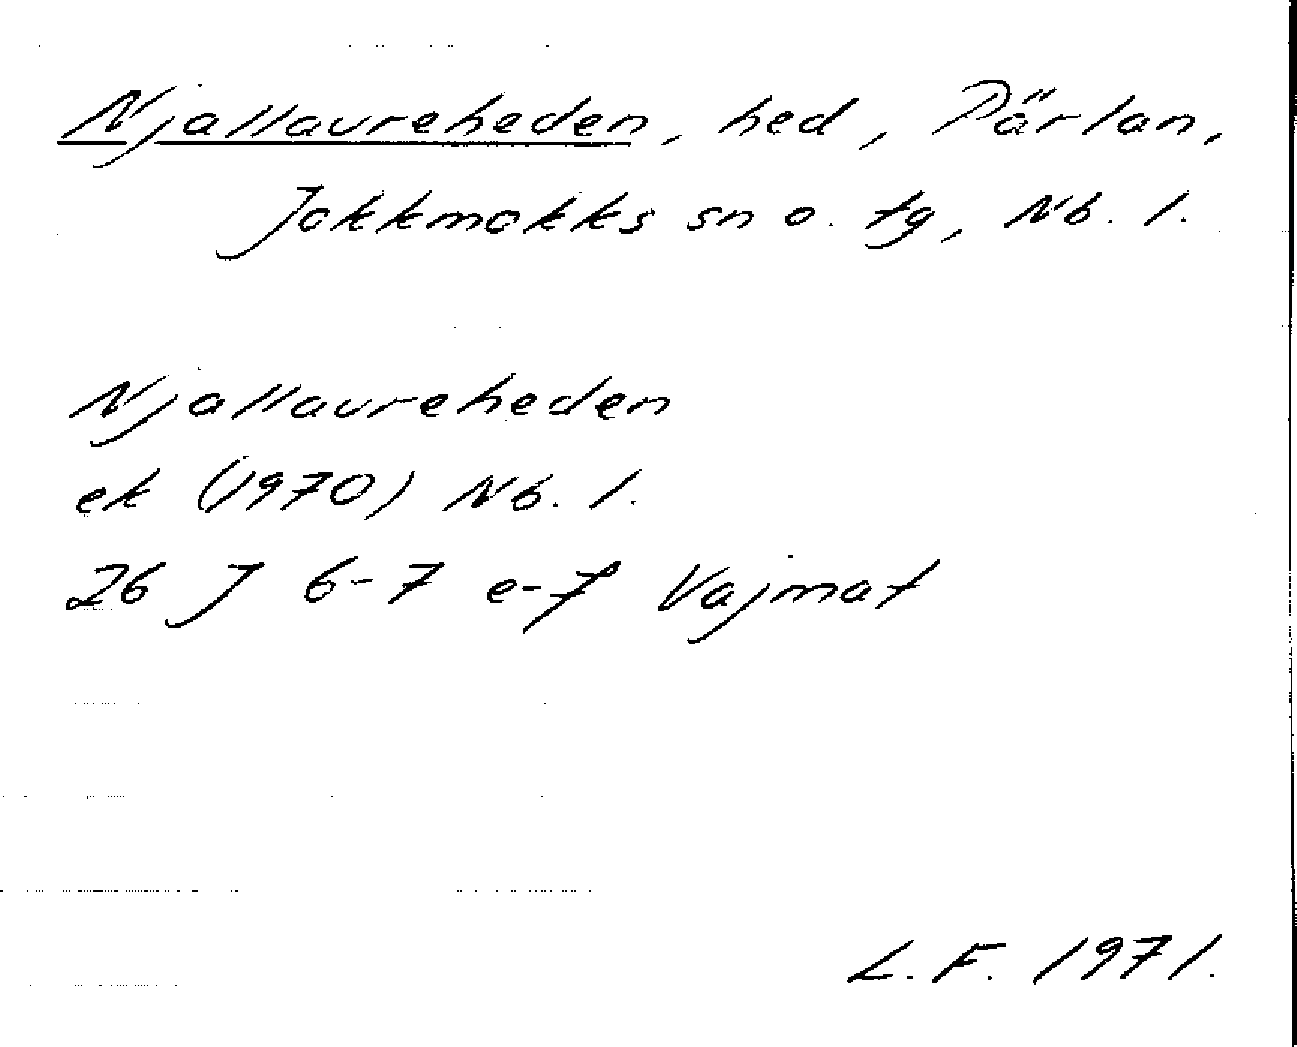 Njallaureheden, hed, Pärlan,
Jokkmokks sn o. tg, Nb. l.
Njallaureheden
ek (1970) Nb. l.
26 J 6-7 e-f Vajmat
L. F. 1971.